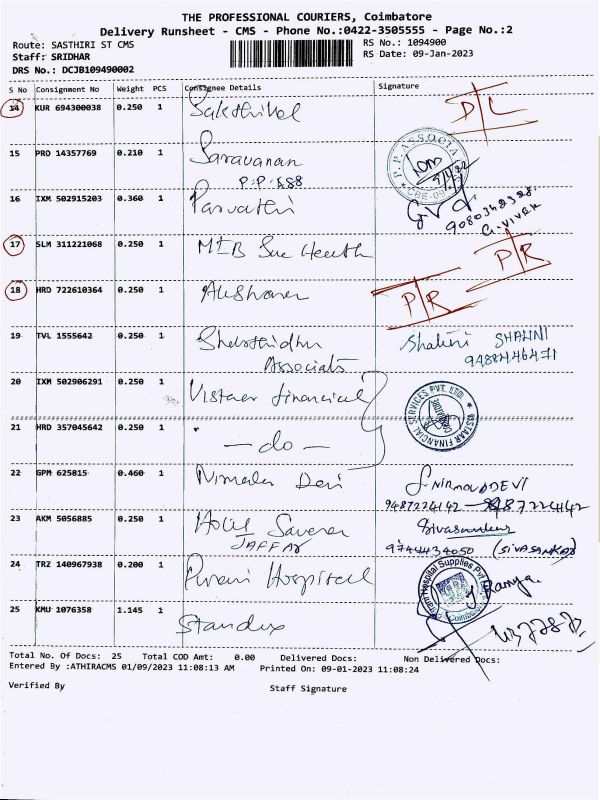 THE PROFESSIONAL COURIERS, Coimbatore
Delivery Runsheet - CMS - Phone No.:0422-3505555 - Page No.:2
Route: SASTHIRI ST CMS
RS No.: 1094900
Staff: SRIDHAR
RS Date: 09-Jan-2023
DRS No.: DCJB109490002
S No Consignment No Weight PCS Consignee Details Signature
14 KUR 694300038 0.250 1 Sakthivel D/L
15 PRO 14357769 0.210 1 Saravanan
P.P. ASSOCIA
P.P. ASS
16 IXM 502915203 0.360 1 Parvathi
G.VIVEK
17 SLM 311221068 0.250 1 P/R
18 HRD 722610364 0.250 1 P/R
19 TVL 1555642 0.250 1 Shalini SHALINI
Associats
20 IXM 502906291 0.250 1 Vistaar financial
VISTAAR FINANCIAL SERVICES PVT. LTD
21 HRD 357045642 0.250 1 " - do -
22 GPM 625815 0.460 1 Nirmala Devi S.NIRMALADEVI
9487224142 9487224142
23 AKM 5056885 0.250 1 Sivasankar
JAFFAR 9744434050 (SIVASANKAR)
24 TRZ 140967938 0.200 1 Hospital
Hospital Supplies Pvt Ramya.
25 KMU 1076358 1.145 1 Standex
Total No. Of Docs: 25 Total COD Amt: 0.00 Delivered Docs: Non Delivered Docs:
Entered By :ATHIRACMS 01/09/2023 11:08:13 AM Printed On: 09-01-2023 11:08:24
Verified By Staff Signature